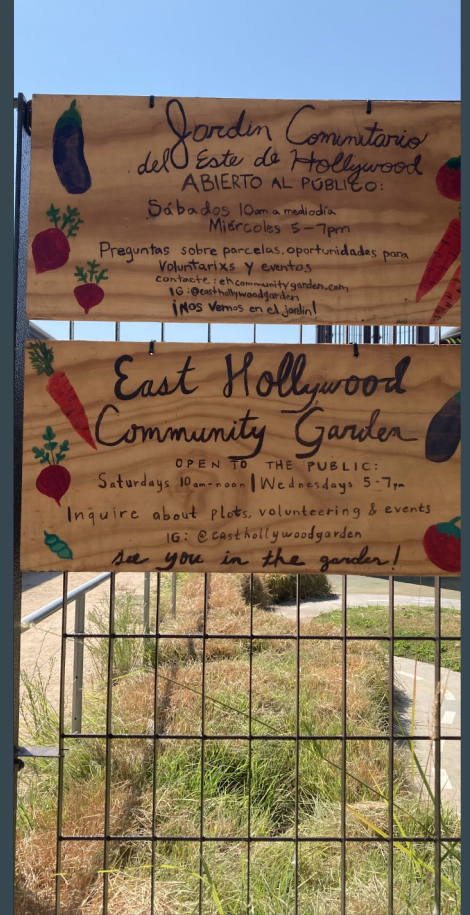 Jardin Comunitario
del Este de Hollywood
ABIERTO AL PÚBLICO:
Sábados 10am a mediodía
Miércoles 5-7pm
Preguntas sobre parcelas, oportunidades para
Voluntarixs y eventos
contacte: ehcommunitygarden.com
IG: @easthollywoodgarden
¡Nos vemos en el jardin!
East Hollywood
Community Garden
OPEN TO THE PUBLIC:
Saturdays 10am-noon | Wednesdays 5-7pm
Inquire about plots, volunteering & events
IG: @easthollywoodgarden
see you in the garden!